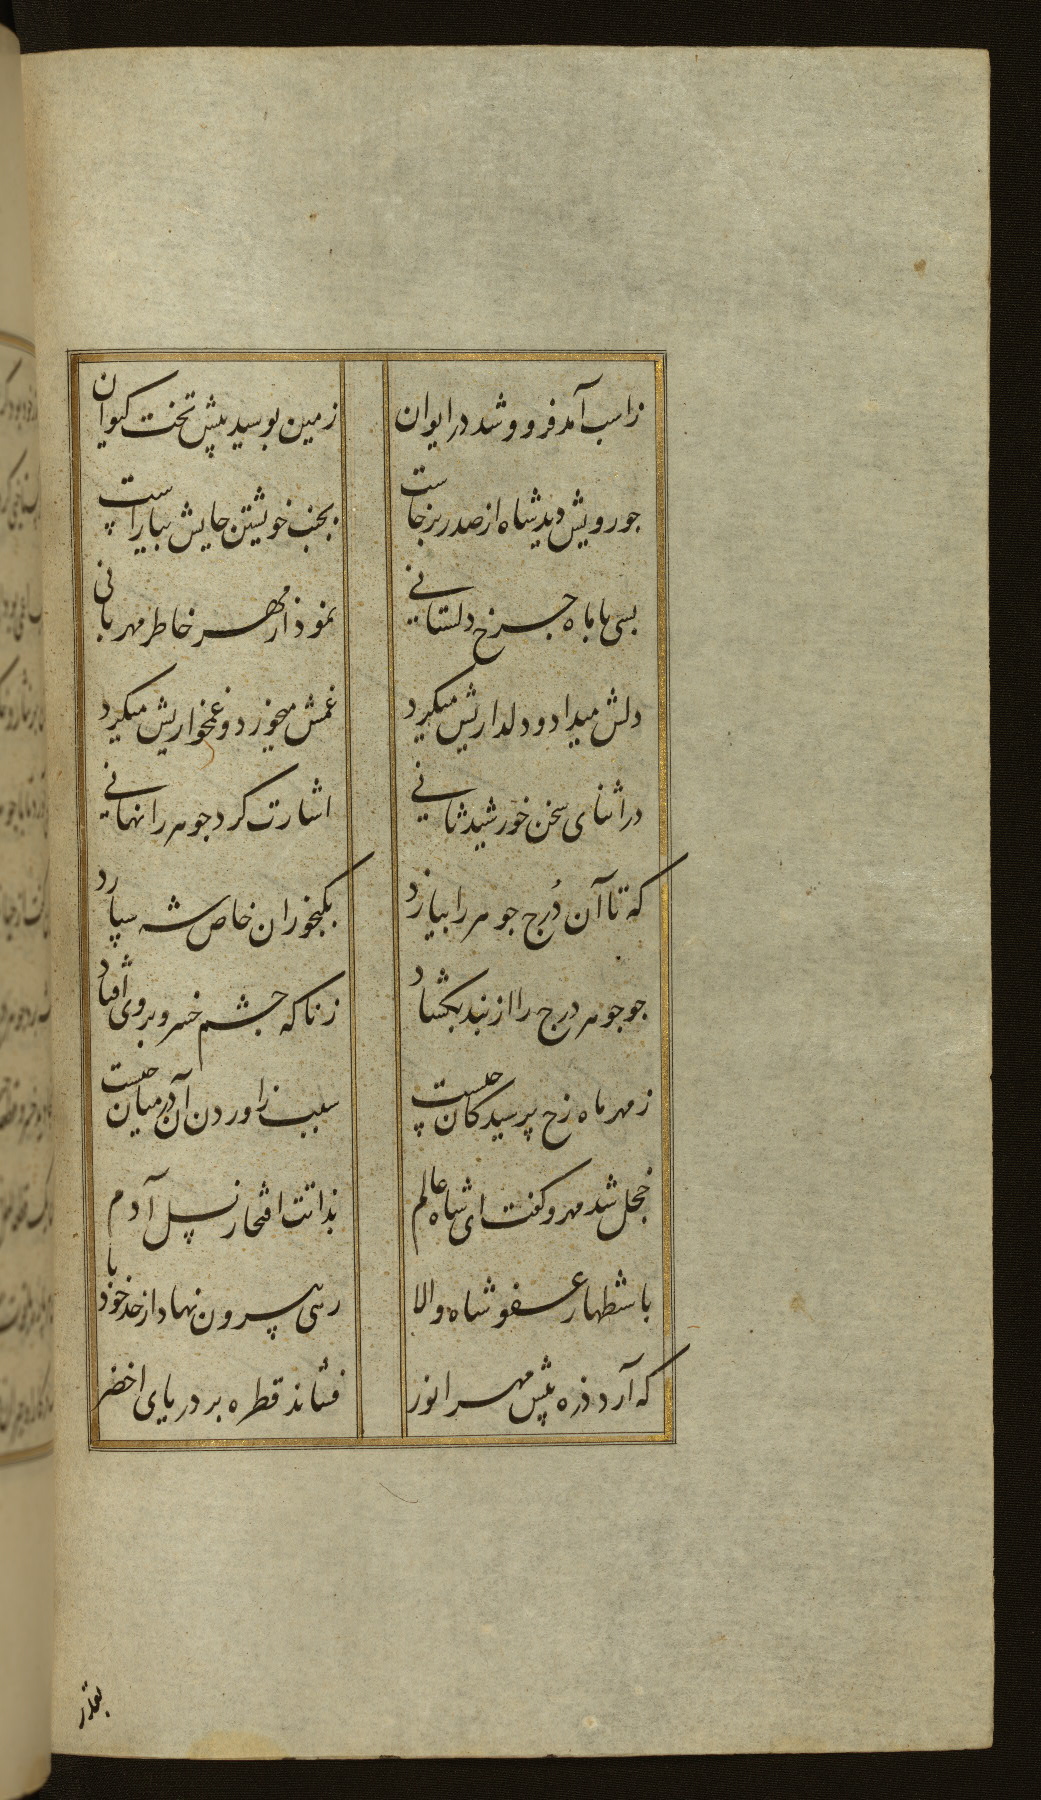 زاسب آمد فرو و شد در ایوان
زمین بوسید پیش تخت کیوان
جو رویش دید شاه از صدر برخاست
بجنب خویشتن جایش بیاراست
بسی با ماه جرخ دلستانی
نمود از مهر خاطر مهربانی
دلش میداد و دلداریش میکرد
غمش میخورد و غمخواریش میکرد
در اثنای سخن خورشید ثانی
اشارت کرد جوهر را نهانی
که تا آن دُرج جوهر را بیارد
بکنجوران خاص شه سپارد
جو جوهر درج را از بند بکشاد
زناکه جشم خسرو بروی افتاد
ز مهر ماه رخ پرسید کان چیست
سبب زاوردن آن در میان چیست
خجل شد مهر و کفت ای شاه عالم
بذاتت افتخار نسل آدم
باستظهار عفو شاه والا
رهی بیرون نهاد از حد خود پا
که آرد ذره پیش مهر انور
فشاند قطره بر دریای اخضر
بقدر